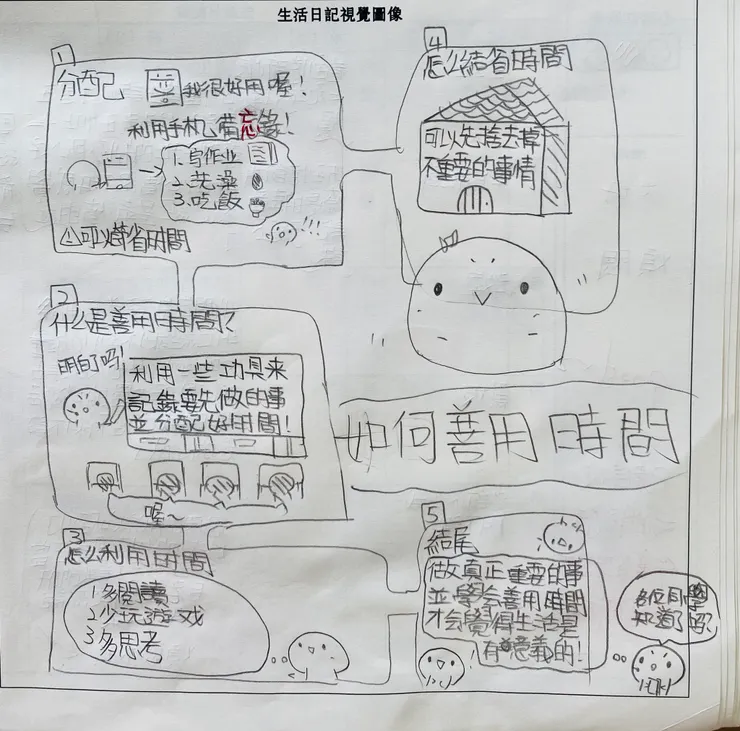 生活日記視覺圖像
1
分配
我很好用喔！
利用手机備忘錄！
1.寫作业
2.洗澡
3.吃飯
可以節省時間
!!!
2
什么是善用時間？
明白了吗！
利用一些功具来
記錄要先做的事
並分配好時間！
喔~
3
怎么利用時間
1 多閱讀
2 少玩游戏
3 多思考
4
怎么結省時間
可以先捨去掉
不重要的事情
如何善用時間
5
結尾
做真正重要的事
並學会善用時間
才会覺得生活是
有意義的！
各位同學
知道了好?